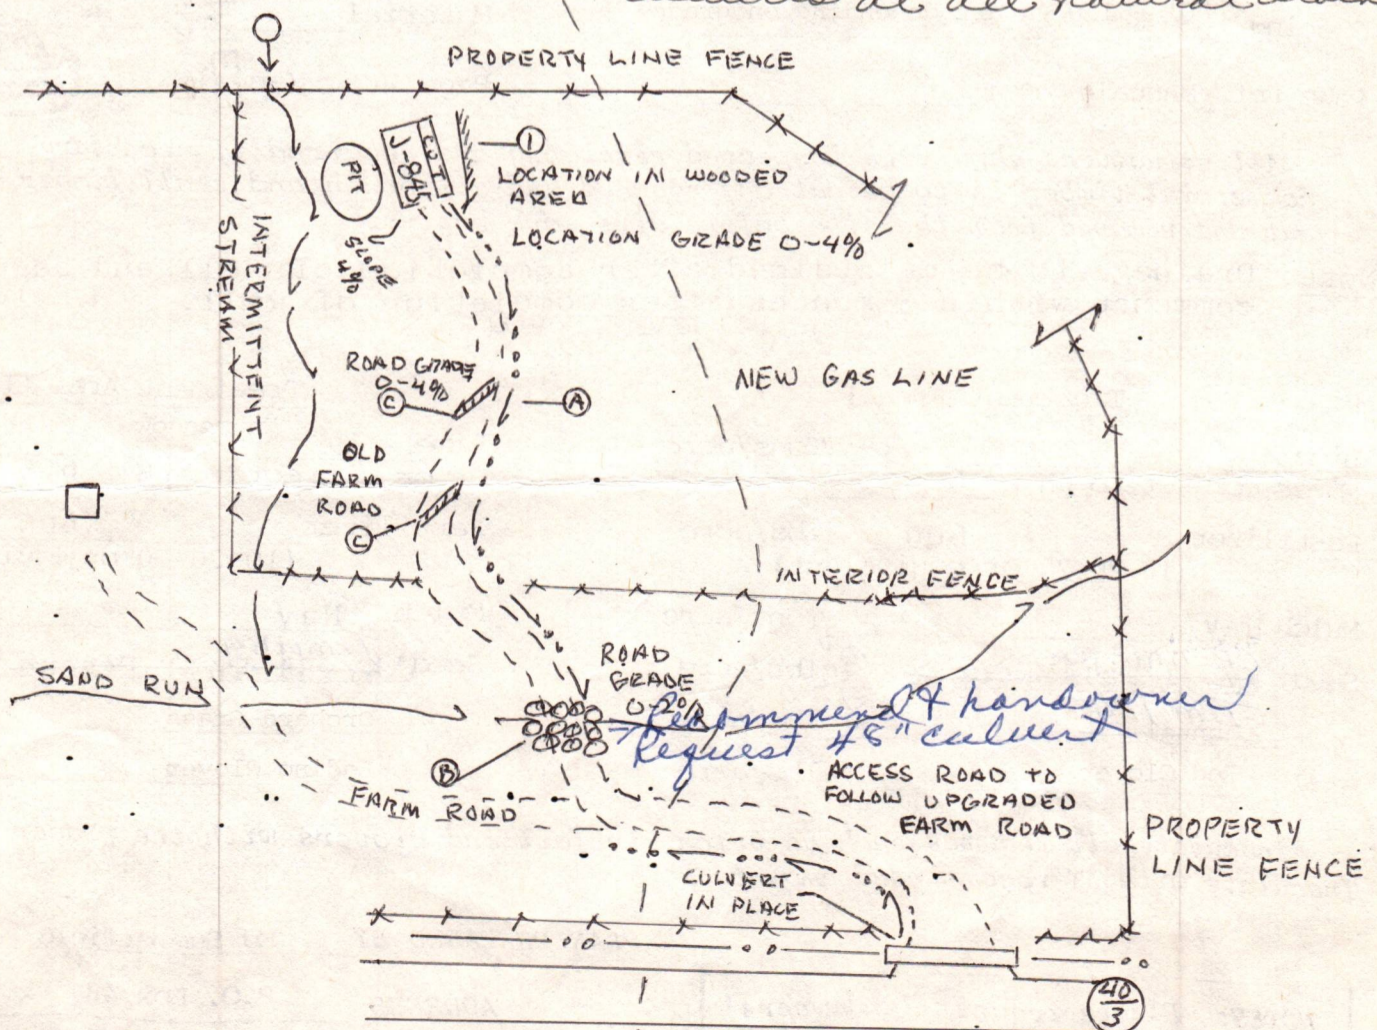 at all natural
PROPERTY LINE FENCE
1
CUT
J-845
PIT
LOCATION IN WOODED
AREA
LOCATION GRADE 0-4%
SLOPE
4%
INTERMITTENT
STREAM
ROAD GRADE
0-4%
C
A
NEW GAS LINE
OLD
FARM
ROAD
C
INTERIOR FENCE
ROAD
GRADE
0-2%
SAND RUN
Recommend & Landowner
Request 48" culvert
B
FARM ROAD
ACCESS ROAD TO
FOLLOW UPGRADED
FARM ROAD
PROPERTY
LINE FENCE
CULVERT
IN PLACE
40
3